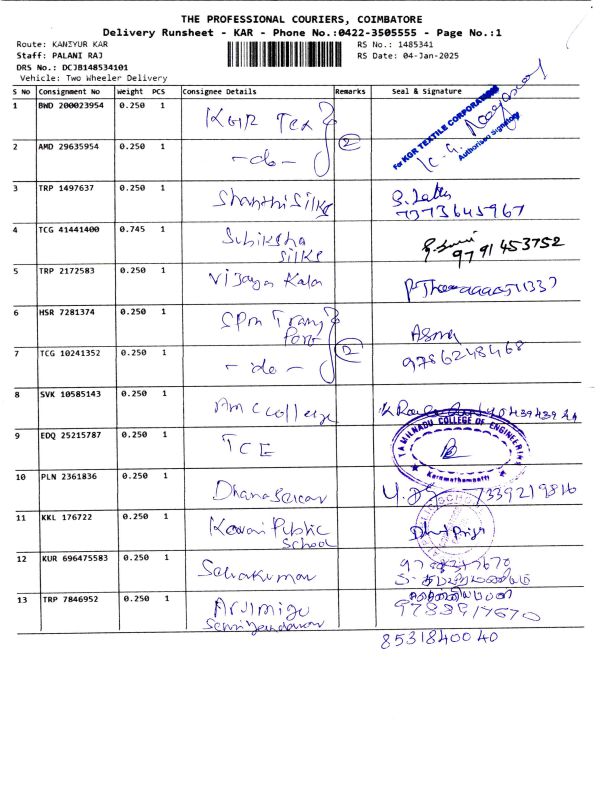 THE PROFESSIONAL COURIERS, COIMBATORE
Delivery Runsheet - KAR - Phone No.:0422-3505555 - Page No.:1
Route: KANIYUR KAR
RS No.: 1485341
Staff: PALANI RAJ
RS Date: 04-Jan-2025
DRS No.: DCJB148534101
Vehicle: Two Wheeler Delivery
S No Consignment No Weight PCS Consignee Details Remarks Seal & Signature
1 BWD 200023954 0.250 1 KGR Tex 2
For KGR TEXTILE CORPORATION
Authorised Signatory
2 AMD 29635954 0.250 1 -do-
3 TRP 1497637 0.250 1 Shanthi Silks
7373645967
4 TCG 41441400 0.745 1 Subiksha
Silks
9791453752
5 TRP 2172583 0.250 1 Vijaya Kala
6 HSR 7281374 0.250 1 SPM Trans
2
7 TCG 10241352 0.250 1 -do-
9786248468
8 SVK 10585143 0.250 1 AMC College
9 EDQ 25215787 0.250 1 TCE
TAMILNADU COLLEGE OF ENGINEERING
Karumathampatti
10 PLN 2361836 0.250 1 Dhanasekar
7339219816
11 KKL 176722 0.250 1 Kovai Public
School
12 KUR 696475583 0.250 1
13 TRP 7846952 0.250 1 Arulmigu
8531840040